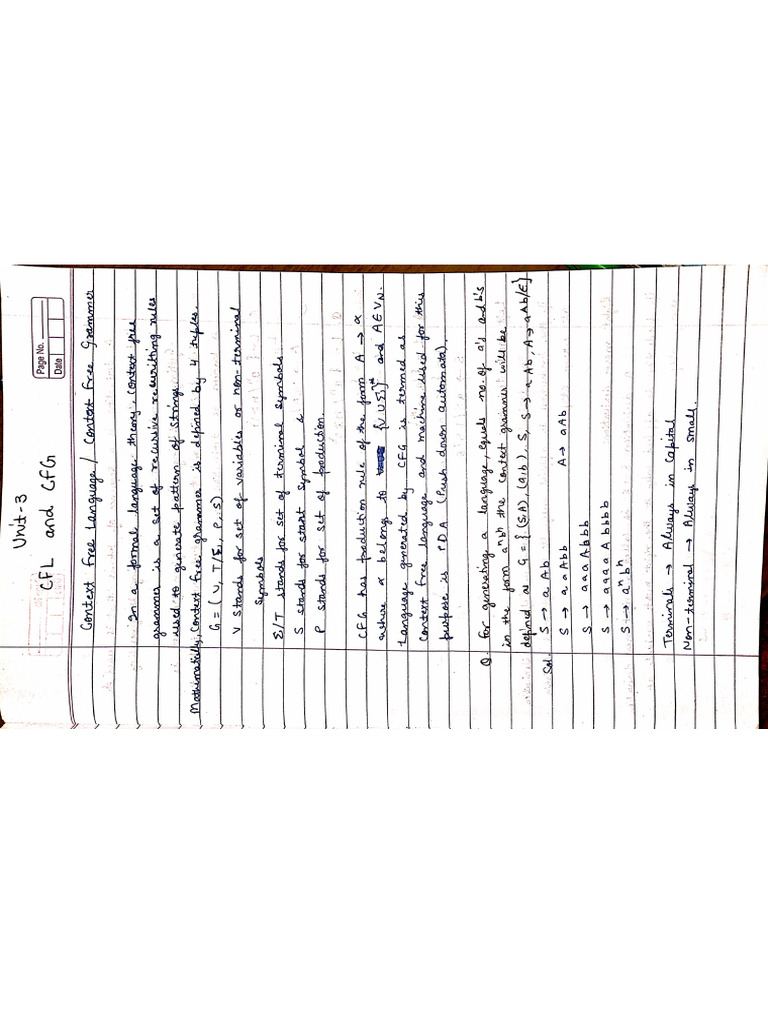 Page No.
Date
Unit-3
CFL and CFG
Context Free Language / Context Free Grammer
In a formal language theory, context free
grammer is a set of recursive rewritting rules
used to generate pattern of string.
Mathematically, Context free grammer is defined by 4 tuples.
G = (V, T/Σ, P, S)
V stands for set of variables or non-terminal
symbols
Σ/T stands for set of terminal symbols
S stands for start symbol &
P stands for set of production.
CFG has production rule of the form A → α
where α belong to {V U Σ}* and A ∈ VN.
Language generated by CFG is termed as
Context free language and machine used for this
purpose is PDA (Push down automata).
Q. For generating a language, equals no. of a's and b's
in the form aⁿbⁿ the context grammer will be
defined as G = {(S,A), (a,b), S, S → aAb, A → aAb/E}
Sol. S → a Ab
S → a aAbb A → aAb
S → aaa Abbb
S → aaaa A bbbb
S → aⁿbⁿ
Terminals → Always in Capital
Non-terminal → Always in small.